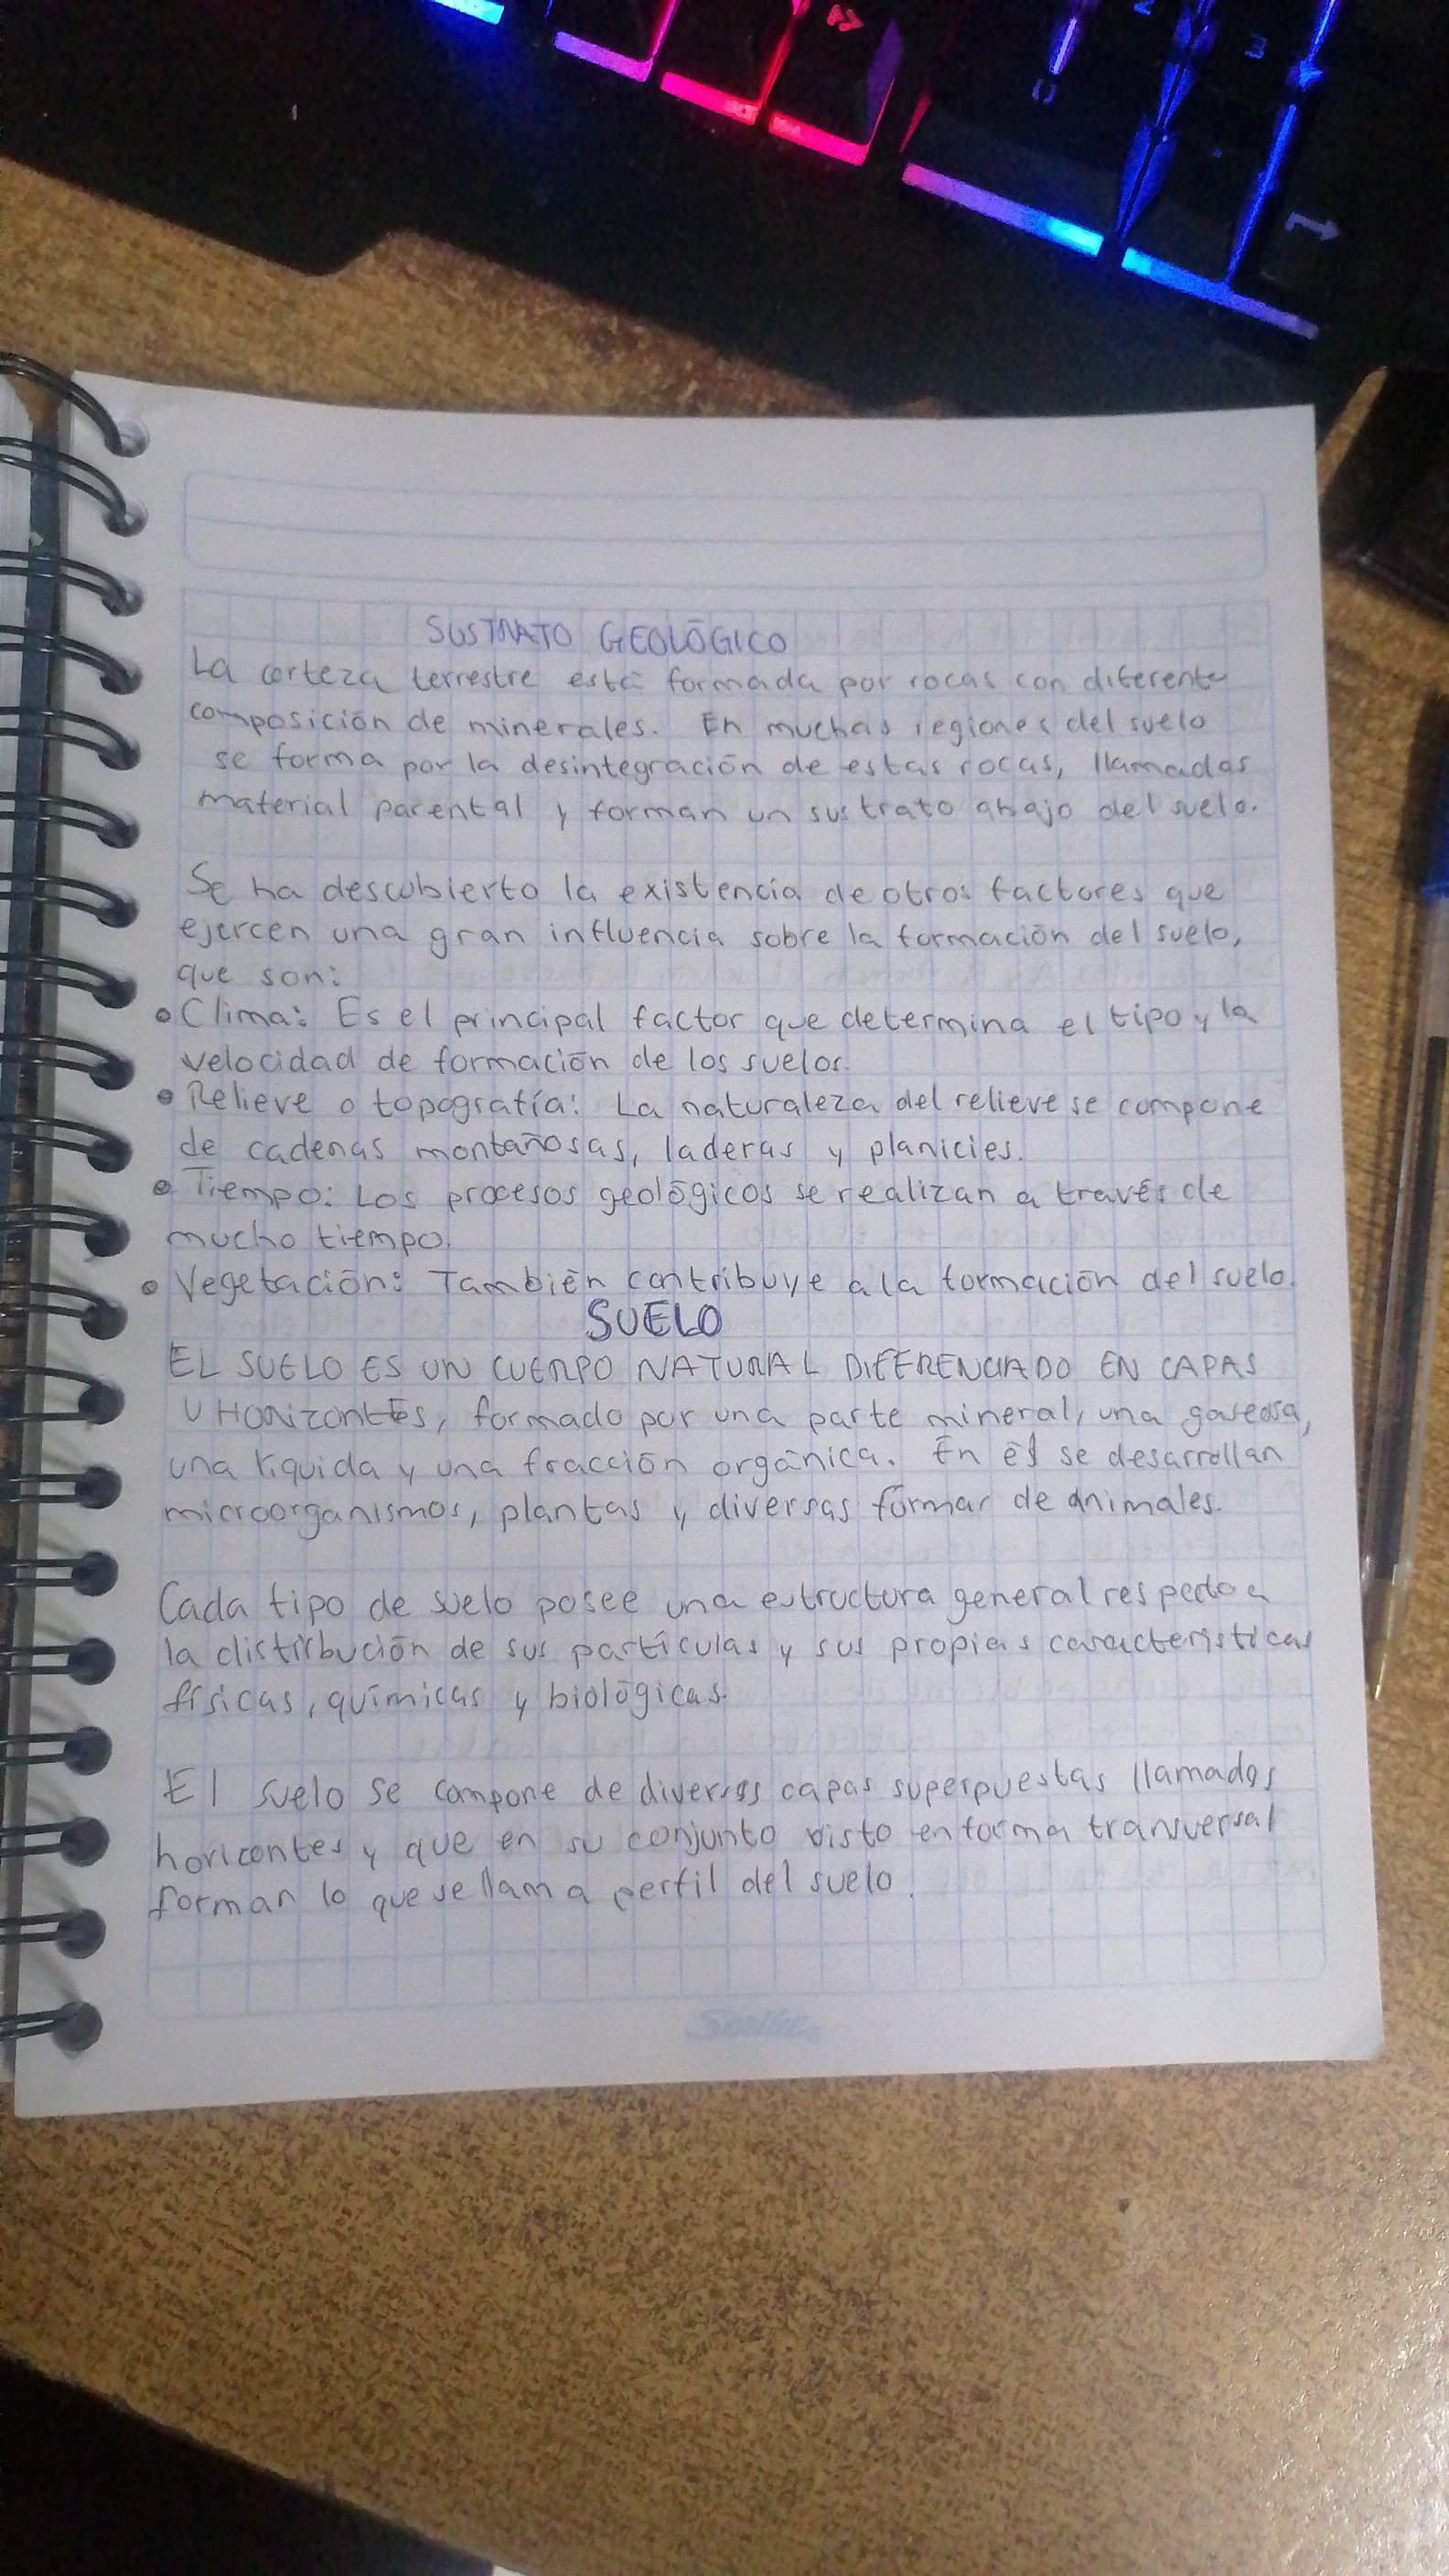 SUSTRATO GEOLÓGICO
La corteza terrestre está formada por rocas con diferente
composición de minerales. En muchas regiones del suelo
se forma por la desintegración de estas rocas, llamadas
material parental y forman un sustrato abajo del suelo.
Se ha descubierto la existencia de otros factores que
ejercen una gran influencia sobre la formación del suelo,
que son:
• Clima: Es el principal factor que determina el tipo y la
velocidad de formación de los suelos.
• Relieve o topografía: La naturaleza del relieve se compone
de cadenas montañosas, laderas y planicies.
• Tiempo: Los procesos geológicos se realizan a través de
mucho tiempo.
• Vegetación: También contribuye a la formación del suelo.
SUELO
EL SUELO ES UN CUERPO NATURAL DIFERENCIADO EN CAPAS
U HORIZONTES, formado por una parte mineral, una gaseosa,
una líquida y una fracción orgánica. En él se desarrollan
microorganismos, plantas y diversas formas de animales.
Cada tipo de suelo posee una estructura general respecto a
la distirbución de sus partículas y sus propias características
físicas, químicas y biológicas.
El suelo se compone de diversas capas superpuestas llamados
horicontes y que en su conjunto visto en forma tranversal
forman lo que se llama perfil del suelo.
Scribe